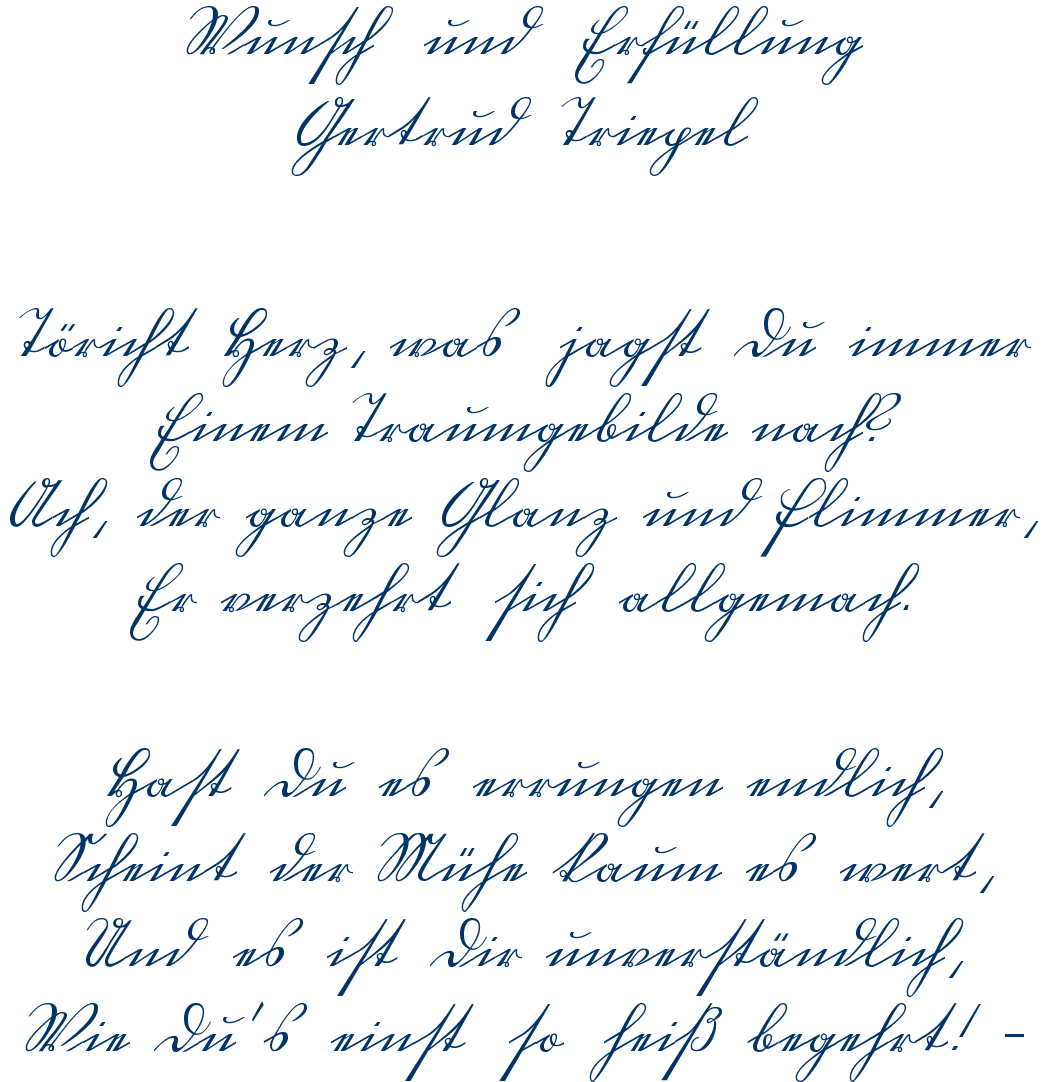 Wunsch und Erfüllung
Gertrud Triepel
Töricht Herz, was jagst Du immer
Einem Traumgebilde nach?
Ach, der ganze Glanz und Flimmer,
Er verzehrt sich allgemach.
Hast Du es errungen endlich,
Scheint der Mühe kaum es wert,
Und es ist Dir unverständlich,
Wie Du's einst so heiß begehrt! -